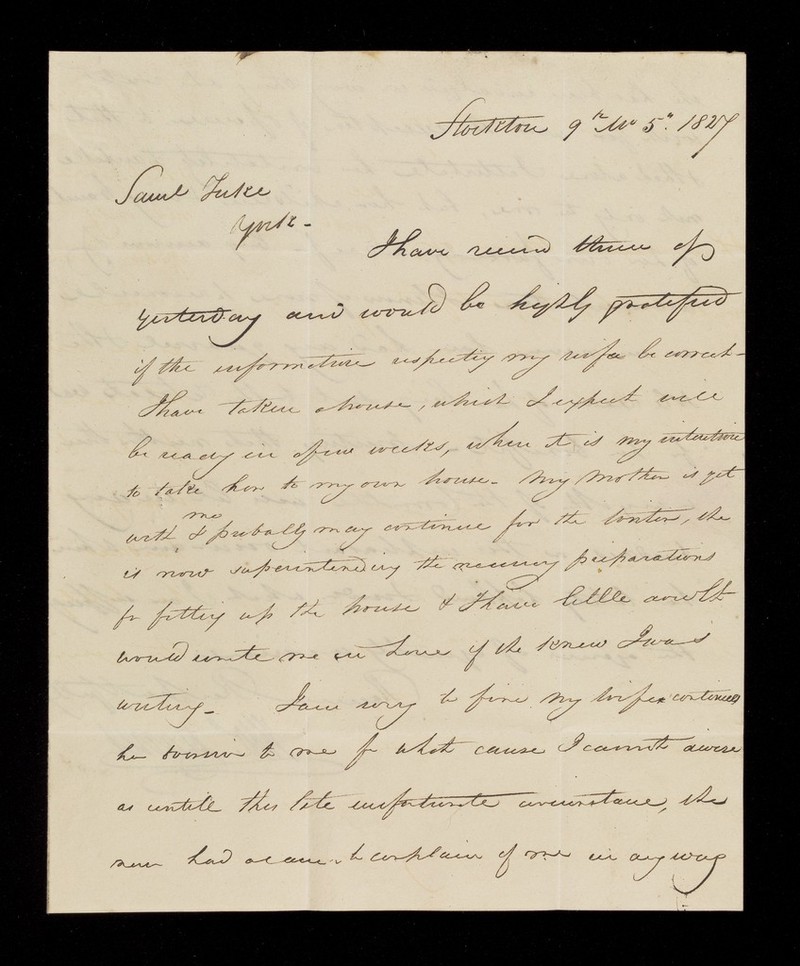 Stockton 9th Mo 5th 1827
Saml Tuke
York -
I have receivd thine of
yesterday and would be highly gratified
if the information respecting my wife be correct -
I have taken a house, which I expect will
be ready in a few weeks, when it is my intention
to take her to my own house - My Mother is yet
with me & probably may continue for the Winter, she
is now superintending the necessary preparations
for fitting up the house & I have little doubt
would unite me in Love if she knew I was
writing - I am sorry to find my wife continues
her aversion to me for what cause I cannot divine
as untill this late unfortunate circumstance, she
never had a cause to complain of me in any way